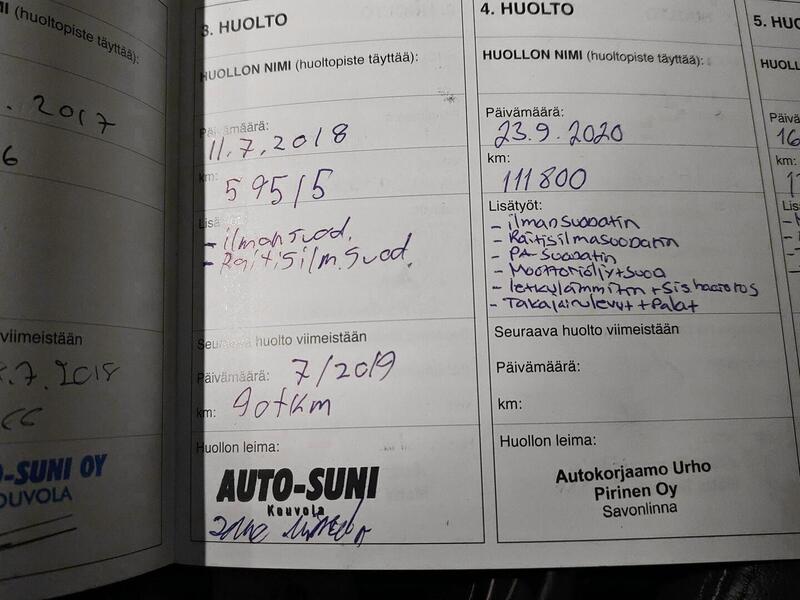 (huoltopiste täyttää):
. 2017
6
viimeistään
.7.2018
O-SUNI OY
KOUVOLA
3. HUOLTO
HUOLLON NIMI (huoltopiste täyttää):
Päivämäärä:
11.7.2018
km:
59515
- ilmansuod.
- Raitisilm.suod.
Seuraava huolto viimeistään
Päivämäärä: 7/2019
km: 90tkm
Huollon leima:
AUTO-SUNI
Kouvola
4. HUOLTO
HUOLLON NIMI (huoltopiste täyttää):
Päivämäärä:
23.9.2020
km:
111800
Lisätyöt:
- ilmansuodatin
- Raitisilmasuodatin
- PA-suodatin
- Moottoriöljyt+suod
- letkulämmitin + Sis.haaroitus
- Takajarrulevyt + Palat
Seuraava huolto viimeistään
Päivämäärä:
km:
Huollon leima:
Autokorjaamo Urho
Pirinen Oy
Savonlinna
5. HUO
HUOLL
Päivä
16
km:
1
Lis